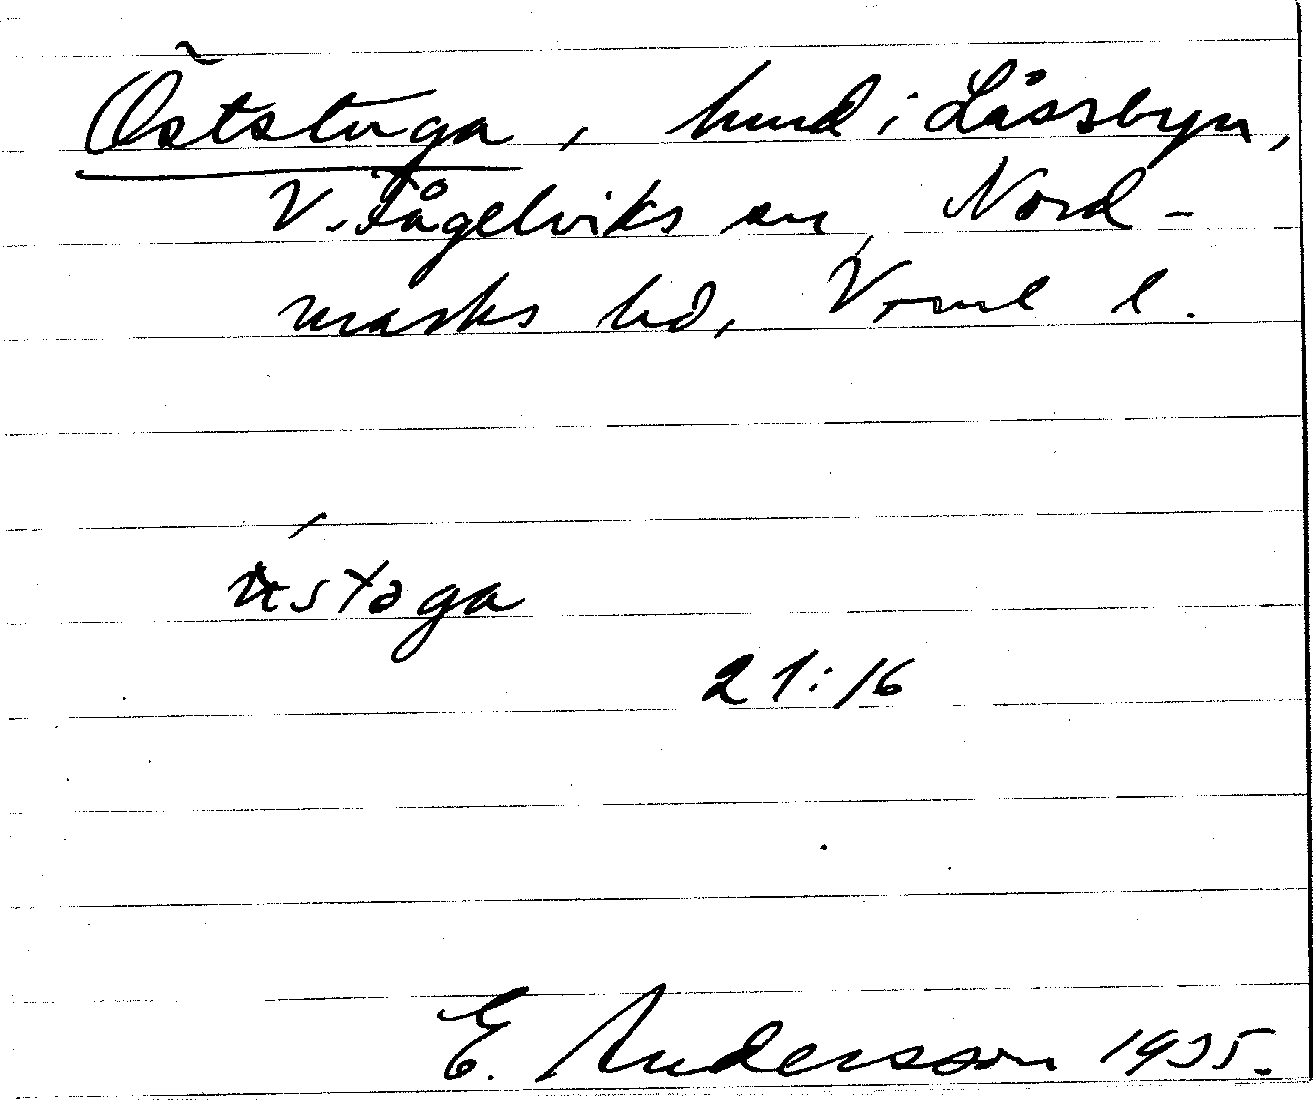 Öststuga, hmd i Låssbyn,
V. Fågelviks sn, Nord-
marks hd, Vrml l.
21:16
E. Andersson 1935.